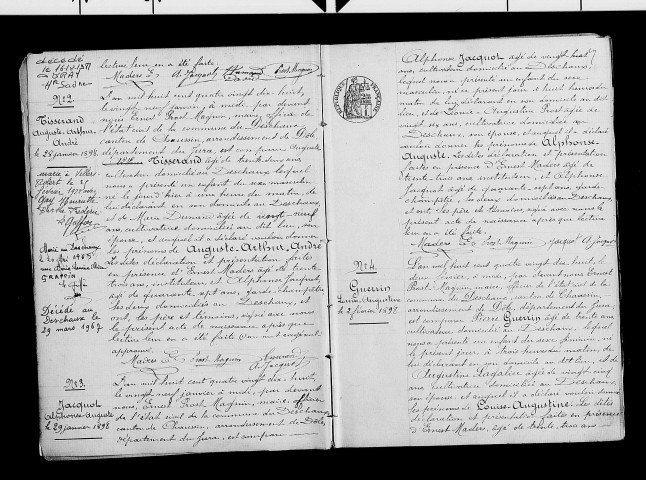 décédé
le 16.12.1957
GRAY
Hte Saône
lecture leur en a été faite.
Maders E. A. Jacquot Prost Magnin
N° 2.
Tisserand
Auguste, Arthur,
André
le 28 janvier 1898.
marié à Villers
Robert le 5
Marié au Deschaux
GRAPPIN
Décédé au
Deschaux le
29 mars 1967
L'an mil huit cent quatre vingt dix huit,
le vingt neuf janvier, à midi, par devant
nous Ernest Prost Magnin, maire, officier de
l'état civil de la commune du Deschaux,
canton de Chaussin, arrondissement de Dole,
département du Jura, est comparu Auguste
Tisserand âgé de trente deux ans,
cultivateur domicilié au Deschaux, lequel
nous a présenté un enfant du sexe masculin,
né le jour d'hier à une heure du matin, de
lui déclarant en son domicile au Deschaux,
et de Marie Dumain âgée de vingt neuf
ans, cultivatrice, domiciliée au dit lieu, son
épouse, et auquel il a déclaré vouloir donner
les prénoms de Auguste-Arthur-André
Les dites déclaration et présentation faites
en présence d'Ernest Maders âgé de trente
trois ans, instituteur, et Alphonse Jacquot
âgé de quarante sept ans, garde champêtre,
les deux domiciliés au Deschaux, et
ont, les père et témoins, signé avec nous
le présent acte de naissance après que
lecture leur en a été faite. Un mot rayé nul
approuvé.
Maders E. Prost Magnin Tisserand
A. Jacquot
N° 3.
Jacquot
Alphonse-Auguste
le 29 janvier 1898
L'an mil huit cent quatre vingt dix huit,
le vingt neuf janvier à midi, par devant
nous, Ernest Prost Magnin, maire, officier
de l'état civil de la commune du Deschaux
canton de Chaussin, arrondissement de Dole,
département du Jura, est comparu
Alphonse Jacquot âgé de vingt huit
ans, cultivateur domicilié au Deschaux,
lequel nous a présenté un enfant du sexe
masculin, né le présent jour à huit heures du
matin de lui déclarant en son domicile au dit
lieu, et de Louise Augustine Prost âgée de
vingt six ans, cultivatrice domiciliée au
Deschaux, son épouse, et auquel il a déclaré
vouloir donner les prénoms de Alphonse-
Auguste. Les dites déclaration et présentation
faites en présence d'Ernest Maders âgé de
trente-trois ans, instituteur, et Alphonse
Jacquot âgé de quarante sept ans, garde
champêtre, les deux domiciliés au Deschaux,
et ont, les père et témoins, signé avec nous le
présent acte de naissance après que lecture
leur en a été faite.
Maders E. Prost Magnin Jacquot A. Jacquot
N° 4.
Guerrin
Louise, Augustine
le 2 février 1898
L'an mil huit cent quatre vingt dix huit, le
février, à midi, par devant nous Ernest
Prost Magnin, maire, officier de l'état civil de la
commune du Deschaux, canton de Chaussin,
arrondissement de Dole, département du Jura,
est comparu Guerrin âgé de trente ans
cultivateur domicilié au Deschaux, lequel
nous a présenté un enfant du sexe féminin, né
le présent jour, à trois heures du matin, de
lui déclarant en son domicile au dit lieu, et de
Augustine âgée de vingt cinq
ans, cultivatrice domiciliée au Deschaux,
son épouse, et auquel il a déclaré vouloir donner
les prénoms de Louise-Augustine. Les dites
déclaration et présentation faites en présence
d'Ernest Maders, âgé de trente-trois ans